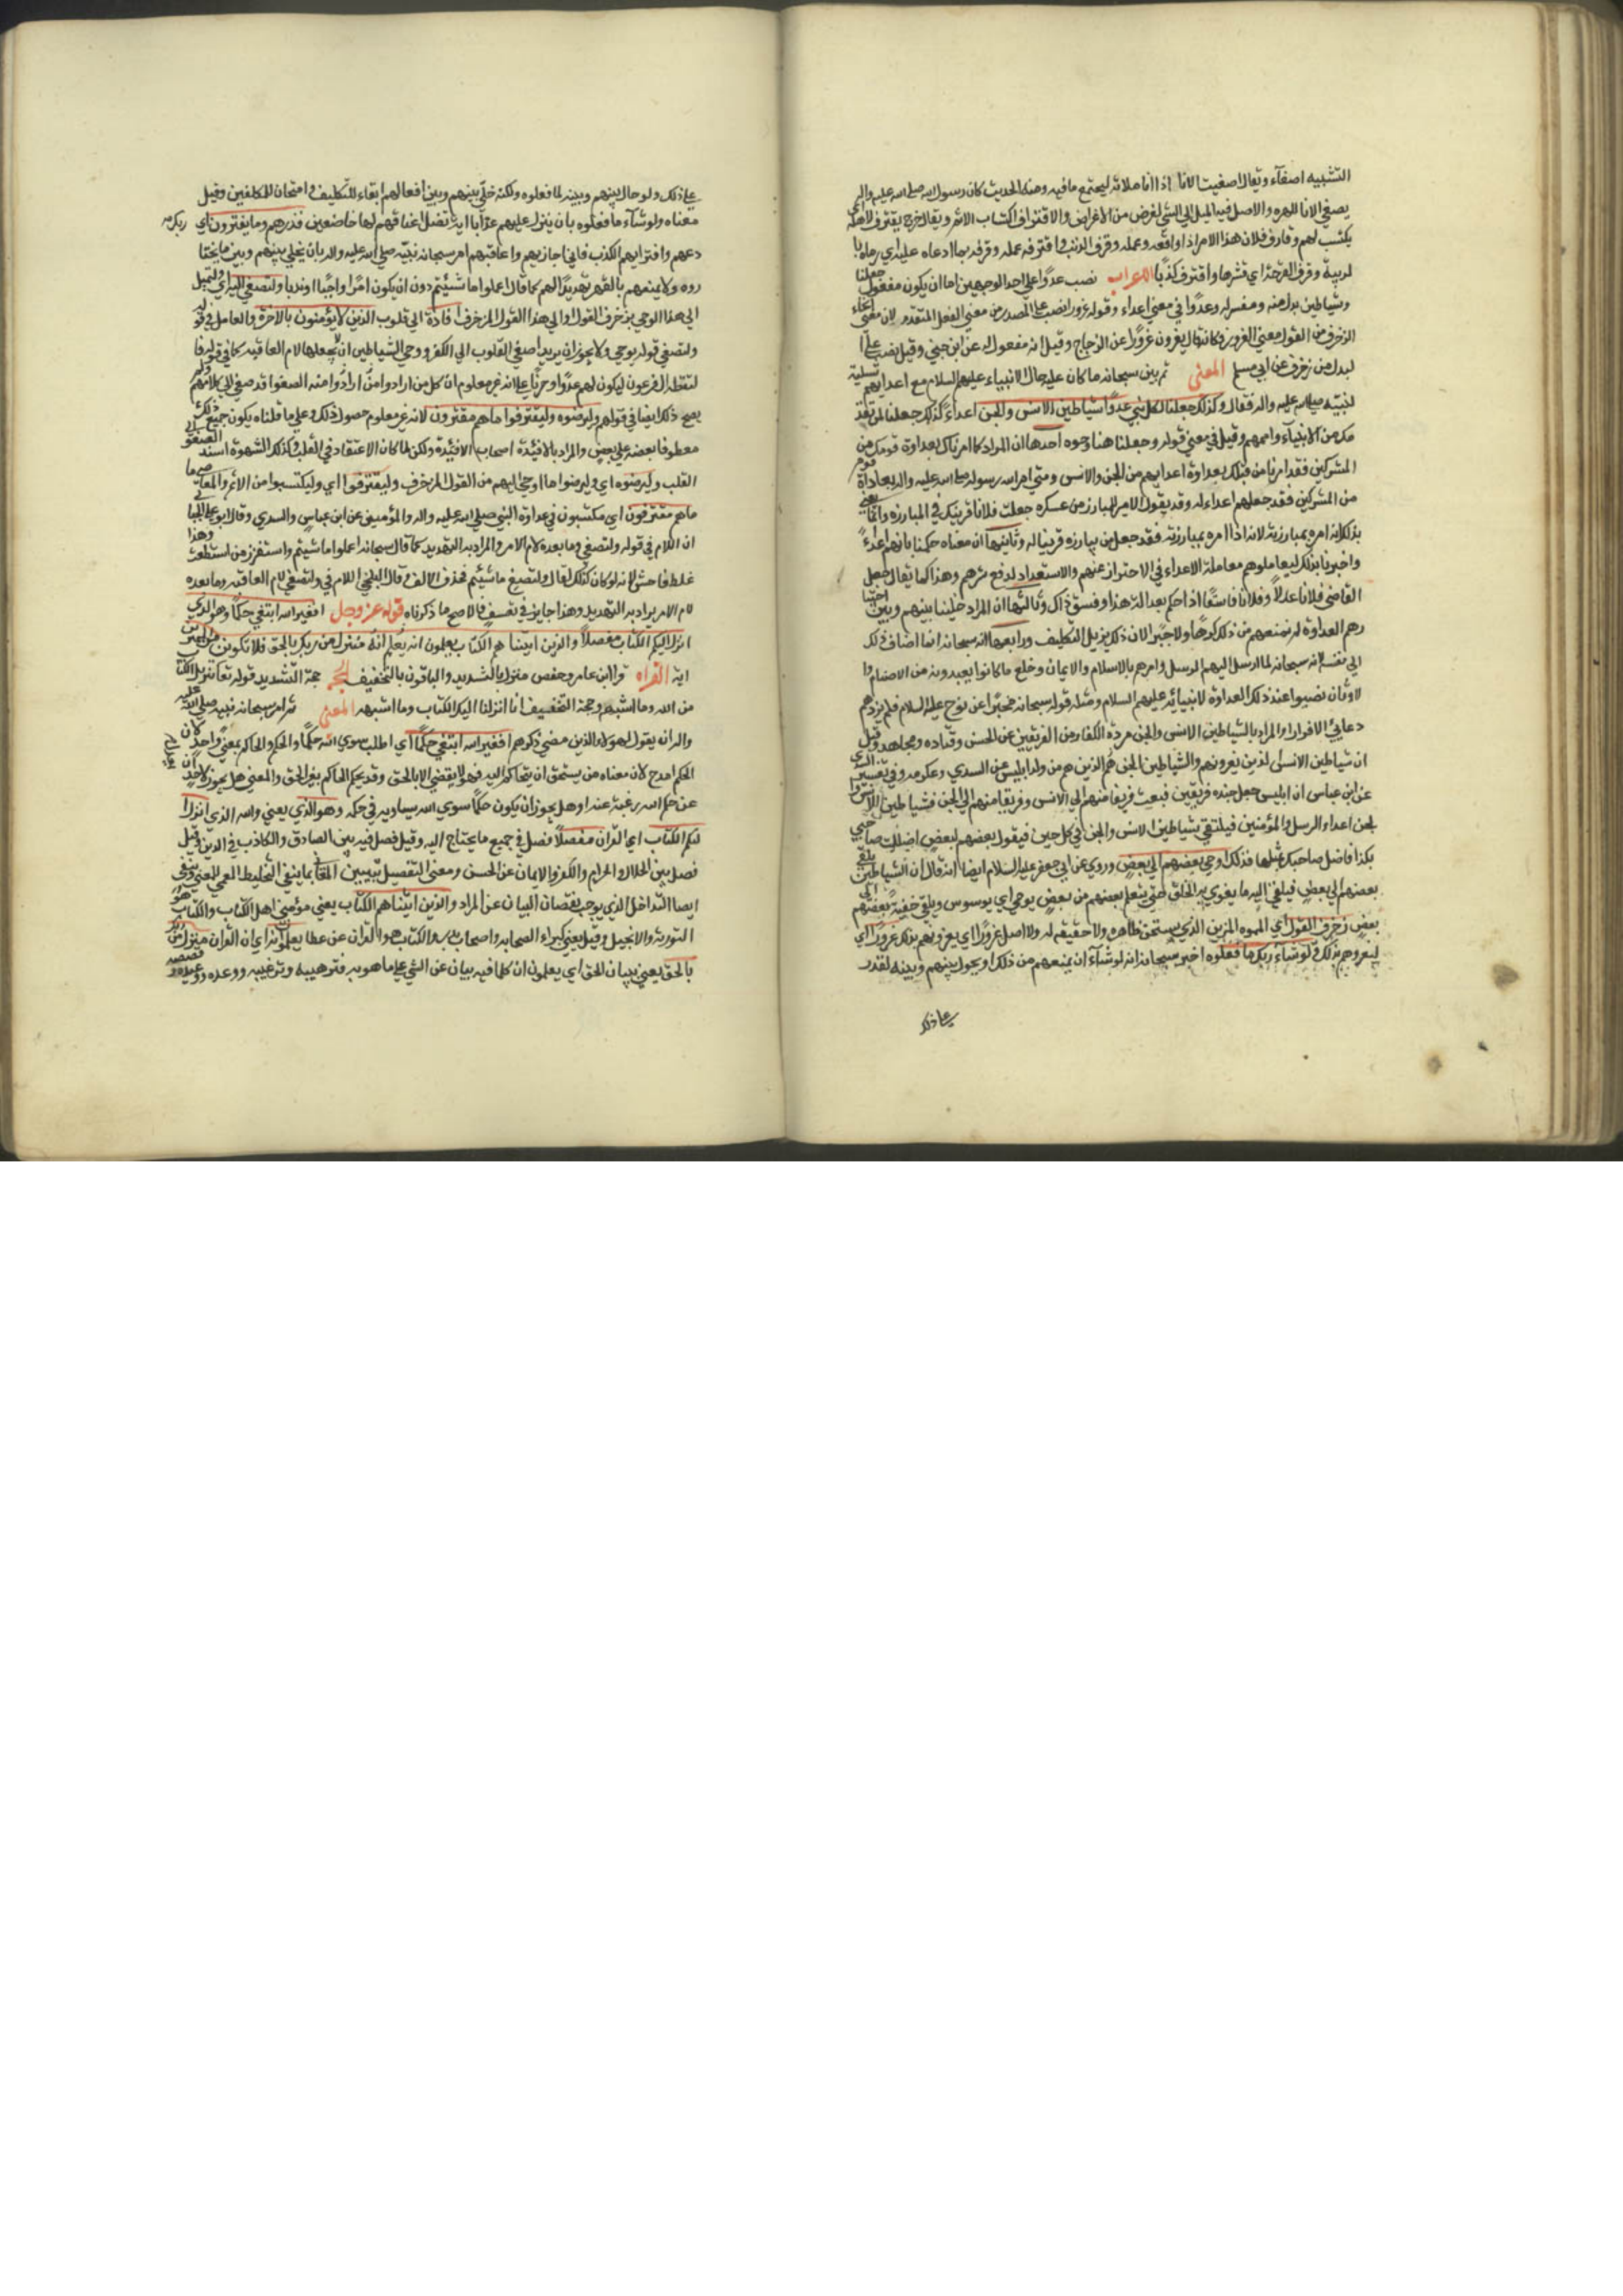 التشبيه اصفآء ويقال اصغيت الانا اذا انا ملاته ليجتمع ما فيه ومنه الحديث كان رسول الله صلى الله عليه واله
يصغي الانا للهره والاصل فيه الميل الى الشي لغرض من الاغراض والاقتراف اكتساب الاثم ويقال خرج يقترف لاهله اي
يكتسب لهم وقارف فلان هذا الامر اذا واقعه وعمله وقرف الذنب واقترفه عمله وقرفه بما ادعاه عليه اي رماه با
لريبة وقرف القرحة اي قشرها واقترف كذبا الاعراب نصب عدوا على احد الوجهين اما ان يكون مفعول جعلنا
وشياطين بدل منه ومفسر له وعدوا في معنى اعداء وقوله غرورا نصب على المصدر من معنى الفعل المتقدم لان معنى ايحاء
الزخرف من القول معنى الغرور فكانه قال يغرون غرورا عن الزجاج وقيل انه مفعول له عن ابن جني وقيل نصب على ا
لبدل من زخرف عن ابي مسلم المعنى ثم بين سبحانه ما كان عليه حال الانبياء عليهم السلام مع اعدايهم تسلية
لنبيه صلى الله عليه واله فقال وكذلك جعلنا لكل نبي عدوا شياطين الانس والجن اعداء كذلك جعلنا لمن تقد
مك من الانبيآء واممهم وقيل في معنى قوله وجعلنا هنا وجوه احدها ان المراد كما امرناك بعداوة قومك من
المشركين فقد امرنا من قبلك بعداوة اعدايهم من الجن والانس ومتى امر الله رسوله صلى الله عليه واله بمعاداة قوم
من المشركين فقد جعلهم اعداء له وقد يقول الامير للمبارز من عسكره جعلت فلانا قرينك في المبارزه وانما يعني
بذلك انه امره بمبارزته لانه اذا امره بمبارزته فقد جعل من يبارزه قرينا له وثانيها ان معناه حكمنا بانهم اعداء
واخبرنا بذلك ليعاملوهم معاملة الاعداء في الاحتراز عنهم والاستعداد لدفع شرهم وهذا كما يقال جعل
القاضي فلانا عدلا وفلانا فاسقا اذا حكم بعدالة هذا وفسق ذاك وثالثها ان المراد خلينا بينهم وبين اختيا
رهم العداوة لم نمنعهم من ذلك كرها ولا جبرا لان ذلك يزيل التكليف ورابعها انه سبحانه انما اضاف ذلك
الى نفسه لانه سبحانه لما ارسل اليهم الرسل وامرهم بالاسلام والايمان وخلع ما كانوا يعبدونه من الاصنام وا
لاوثان نصبوا عند ذلك العداوة لانبيائه عليهم السلام ومثله قوله سبحانه مخبرا عن نوح عليه السلام فلم يزدهم
دعايئ الا فرارا والمراد بالشياطين الانس والجن مردة الكفار من الفريقين عن الحسن وقتاده ومجاهد وقيل
ان شياطين الانس الذين يغرونهم والشياطين الجن هم الذين هم من ولد ابليس عن السدي وعكرمه وفي تفسير
عن ابن عباس ان ابليس جعل جنده فريقين فبعث فريقا منهم الى الانس وفريقا منهم الى الجن فشياطين الانس وا
لجن اعداء الرسل والمؤمنين فيلتقي شياطين الانس والجن في كل حين فيقول بعضهم لبعض اضللت صاحبي
بكذا فاضل صاحبك بمثلها فذلك اوحى بعضهم الى بعض وروي عن ابي جعفر عليه السلام ايضا انه قال ان الشياطين يلقي
بعضهم الى بعض فيلقي اليه ما يغوي به الخلق حتى يتعلم بعضهم من بعض يوحي اي يوسوس ويلقي خفية بعضهم الى
بعض زخرف القول اي المموه المزين الذي يستحسن ظاهره ولا حقيقه له ولا اصل غرورا اي يغرونهم بذلك غرورا اي
ليغروهم بذلك ولو شآء ربك ما فعلوه اخبر سبحانه انه لو شآء ان يمنعهم من ذلك او يحول بينهم وبينه لقدر
على ذلك
على ذلك ولو حال بينهم وبينه لما فعلوه ولكنه خلى بينهم وبين افعالهم ابقاء للتكليف وامتحان للمكلفين وقيل
معناه ولو شآء ما فعلوه بان ينزل عليهم عذابا او اية تضل اعناقهم لها خاضعين فذرهم وما يفترون اي
دعهم وافترايهم الكذب فاني اجازيهم واعاقبهم امر سبحانه نبيه صلى الله عليه واله بان يخلي بينهم وبين ما يختا
روه ولا يمنعهم بالقهر تهديدا لهم كما قال اعلموا ما شيئتم دون ان يكون امرا واجبا او ندبا ولتصغى اليه اي ولتميل
الى هذا الوحي بزخرف القول والى هذا القول المزخرف افئدة اي قلوب الذين لا يؤمنون بالاخرة والعامل في قوله
ولتصغى قوله يوحي ولا يجوز ان يريد اصغى القلوب الى الكفر ووحي الشياطين الا ان يجعلها لام العاقبه كما في قوله فا
لتقطه ال فرعون ليكون لهم عدوا وحزنا على انه غير معلوم ان كل من ارادوا من ارادوا منه الصغوا قد صغى الى كلامهم ولم
يصح ذلك ايضا في قوله وليرضوه وليقترفوا ما هم مقترفون لانه غير معلوم حصول ذلك وعلى ما قلناه يكون جميع ذلك
معطوفا بعضه على بعض والمراد بالافئدة اصحاب الافئيدة ولكن لما كان الاعتقاد في القلب وكذلك الشهوة اسند الصغو الى
القلب وليرضوه اي وليرضوا ما اوحي اليهم من القول المزخرف وليقترفوا اي وليكتسبوا من الاثم والمعاصي ما
ماهم مقترفون اي مكتسبون في عداوة النبي صلى الله عليه واله والمؤمنين عن ابن عباس والسدي وقال ابو علي الجبا
ان اللام في قوله ولتصغى وما بعده لام الامر والمراد به التهديد كما قال سبحانه اعلموا ما شيئتم واستفزز من استطعت وهذا
غلط فاحش لانه لو كان كذلك لقال ولتصغ ما شئيتم فحذف الالف وقال البلخي اللام في ولتصغى لام العاقبه وما بعده
لام الامر يراد به التهديد وهذا جايز في نفسه والاصح ما ذكرناه قوله عز وجل افغير الله ابتغي حكما وهو الذي
انزل اليكم الكتاب مفصلا والذين اتيناهم الكتاب يعلمون انه منزل من ربك بالحق فلا تكونن من الممترين
اية القراه قرا ابن عامر وحفص منزل بالتشديد والباقون بالتخفيف الحجه حجة التشديد قوله تعا تنزيل الكتا
من الله وما اشبهه وحجة التخفيف انا انزلنا اليك الكتاب وما اشبهه المعنى ثم امر سبحانه نبيه صلى الله عليه
واله ان يقول لهؤلاء الذين مضى ذكرهم افغير الله ابتغي حكما اي اطلب سوى الله حكما والحكم والحاكم بمعنى واحد
الحكم امدح لان معناه من يستحق ان يتحاكم اليه فهو لا يقضي الا بالحق وقد يحكم الحاكم بغير الحق والمعنى هل يجوز لاحد ان
عن حكم الله رغبة عنه او هل يجوز ان يكون حكما سوى الله يساويه في حكمه وهو الذي يعني والله الذي انزل ا
ليكم الكتاب اي القران مفصلا فصل فيه جميع ما يحتاج اليه وقيل فصل فيه بين الصادق والكاذب في الدين وقيل
فصل بين الحلال والحرام والكفر والايمان عن الحسن ومعنى التفصيل تبيين المعاني بما ينفي التخليط المعمي للمعنى وينفي
ايضا التداخل الذي يوجب نقصان البيان عن المراد والذين اتيناهم الكتاب يعني مؤمني اهل الكتاب والكتاب هو
التورية والانجيل وقيل يعني كبراء الصحابه واصحاب بدر والكتاب هو القران عن عطا يعلمون انه اي ان القران منزل من
بالحق يعني بيان الحق اي يعلمون ان كلما فيه بيان عن الشي على ما هو به فترهيبه وترغيبه ووعده ووعيده و